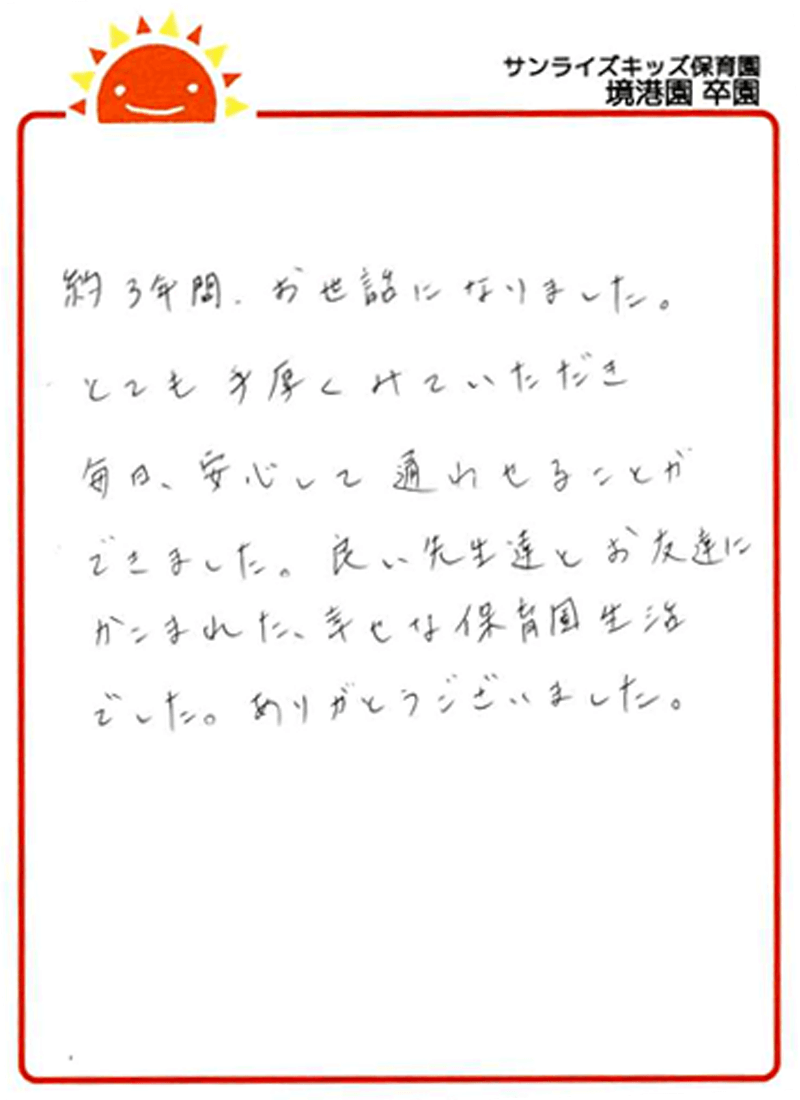 サンライズキッズ保育園
境港園 卒園
約3年間、お世話になりました。
とても手厚くみていただき
毎日、安心して通わせることが
できました。良い先生達とお友達に
かこまれた、幸せな保育園生活
でした。ありがとうございました。